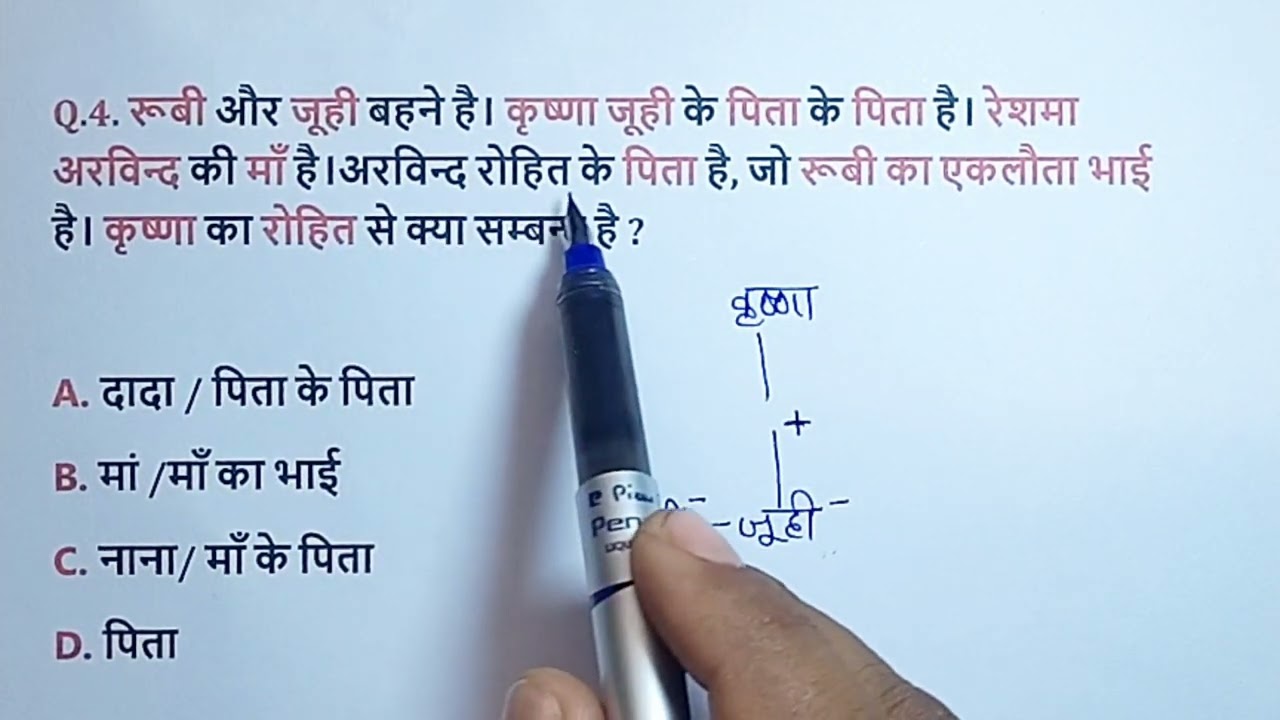 Q.4. रूबी और जूही बहने है। कृष्णा जूही के पिता के पिता है। रेशमा
अरविन्द की माँ है।अरविन्द रोहित के पिता है, जो रूबी का एकलौता भाई
है। कृष्णा का रोहित से क्या है ?
कृष्णा
A. दादा / पिता के पिता
+
B. मां /माँ का भाई
Pen
- जूही -
C. नाना/ माँ के पिता
D. पिता